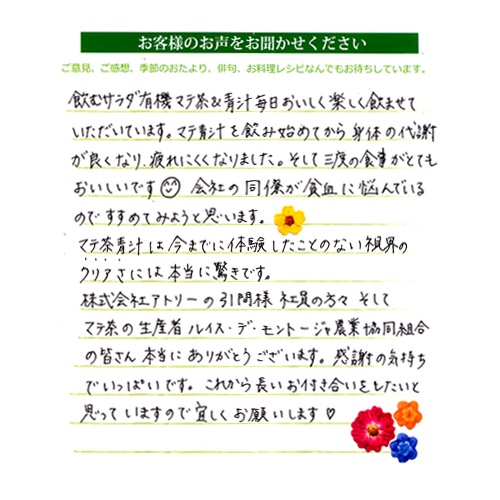 お客様のお声をお聞かせください
ご意見、ご感想、季節のおたより、俳句、お料理レシピなんでもお待ちしています。
飲むサラダ有機マテ茶&青汁毎日おいしく楽しく飲ませて
いただいています。マテ青汁を飲み始めてから身体の代謝
が良くなり、疲れにくくなりました。そして三度の食事がとても
おいしいです 会社の同僚が貧血に悩んでいる
のですすめてみようと思います。
マテ茶青汁は今までに体験したことのない視界の
クリアさには本当に驚きです。
株式会社アトリーの引間様 社員の方々 そして
マテ茶の生産者 ルイス・デ・モントージャ農業協同組合
の皆さん本当にありがとうございます。感謝の気持ち
でいっぱいです。これから長いお付き合いをしたいと
思っていますので宜しくお願いします♡